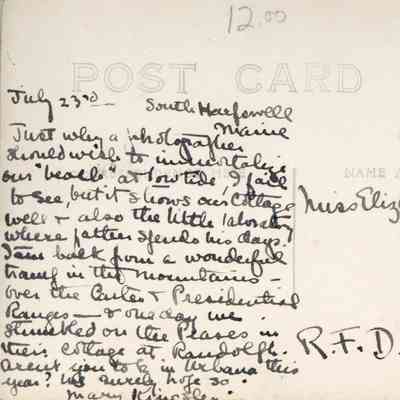 12.00
POST CARD
July 23rd - South Harpswell
Maine
Just why a photographer
should wish to immortalize
our "beach" at low tide, I fail
to see, but it shows our cottage
well + also the little laboratory
where father spends his days.
I am back from a wonderful
tramp in the mountains -
over the Carter + Presidential
Ranges - + one day we
stumbled on the Peases in
their cottage at Randolph.
Aren't you to be in Urbana this
year? We surely hope so.
Mary Kingsley
NAME A
Miss Eliz
R.F.D.